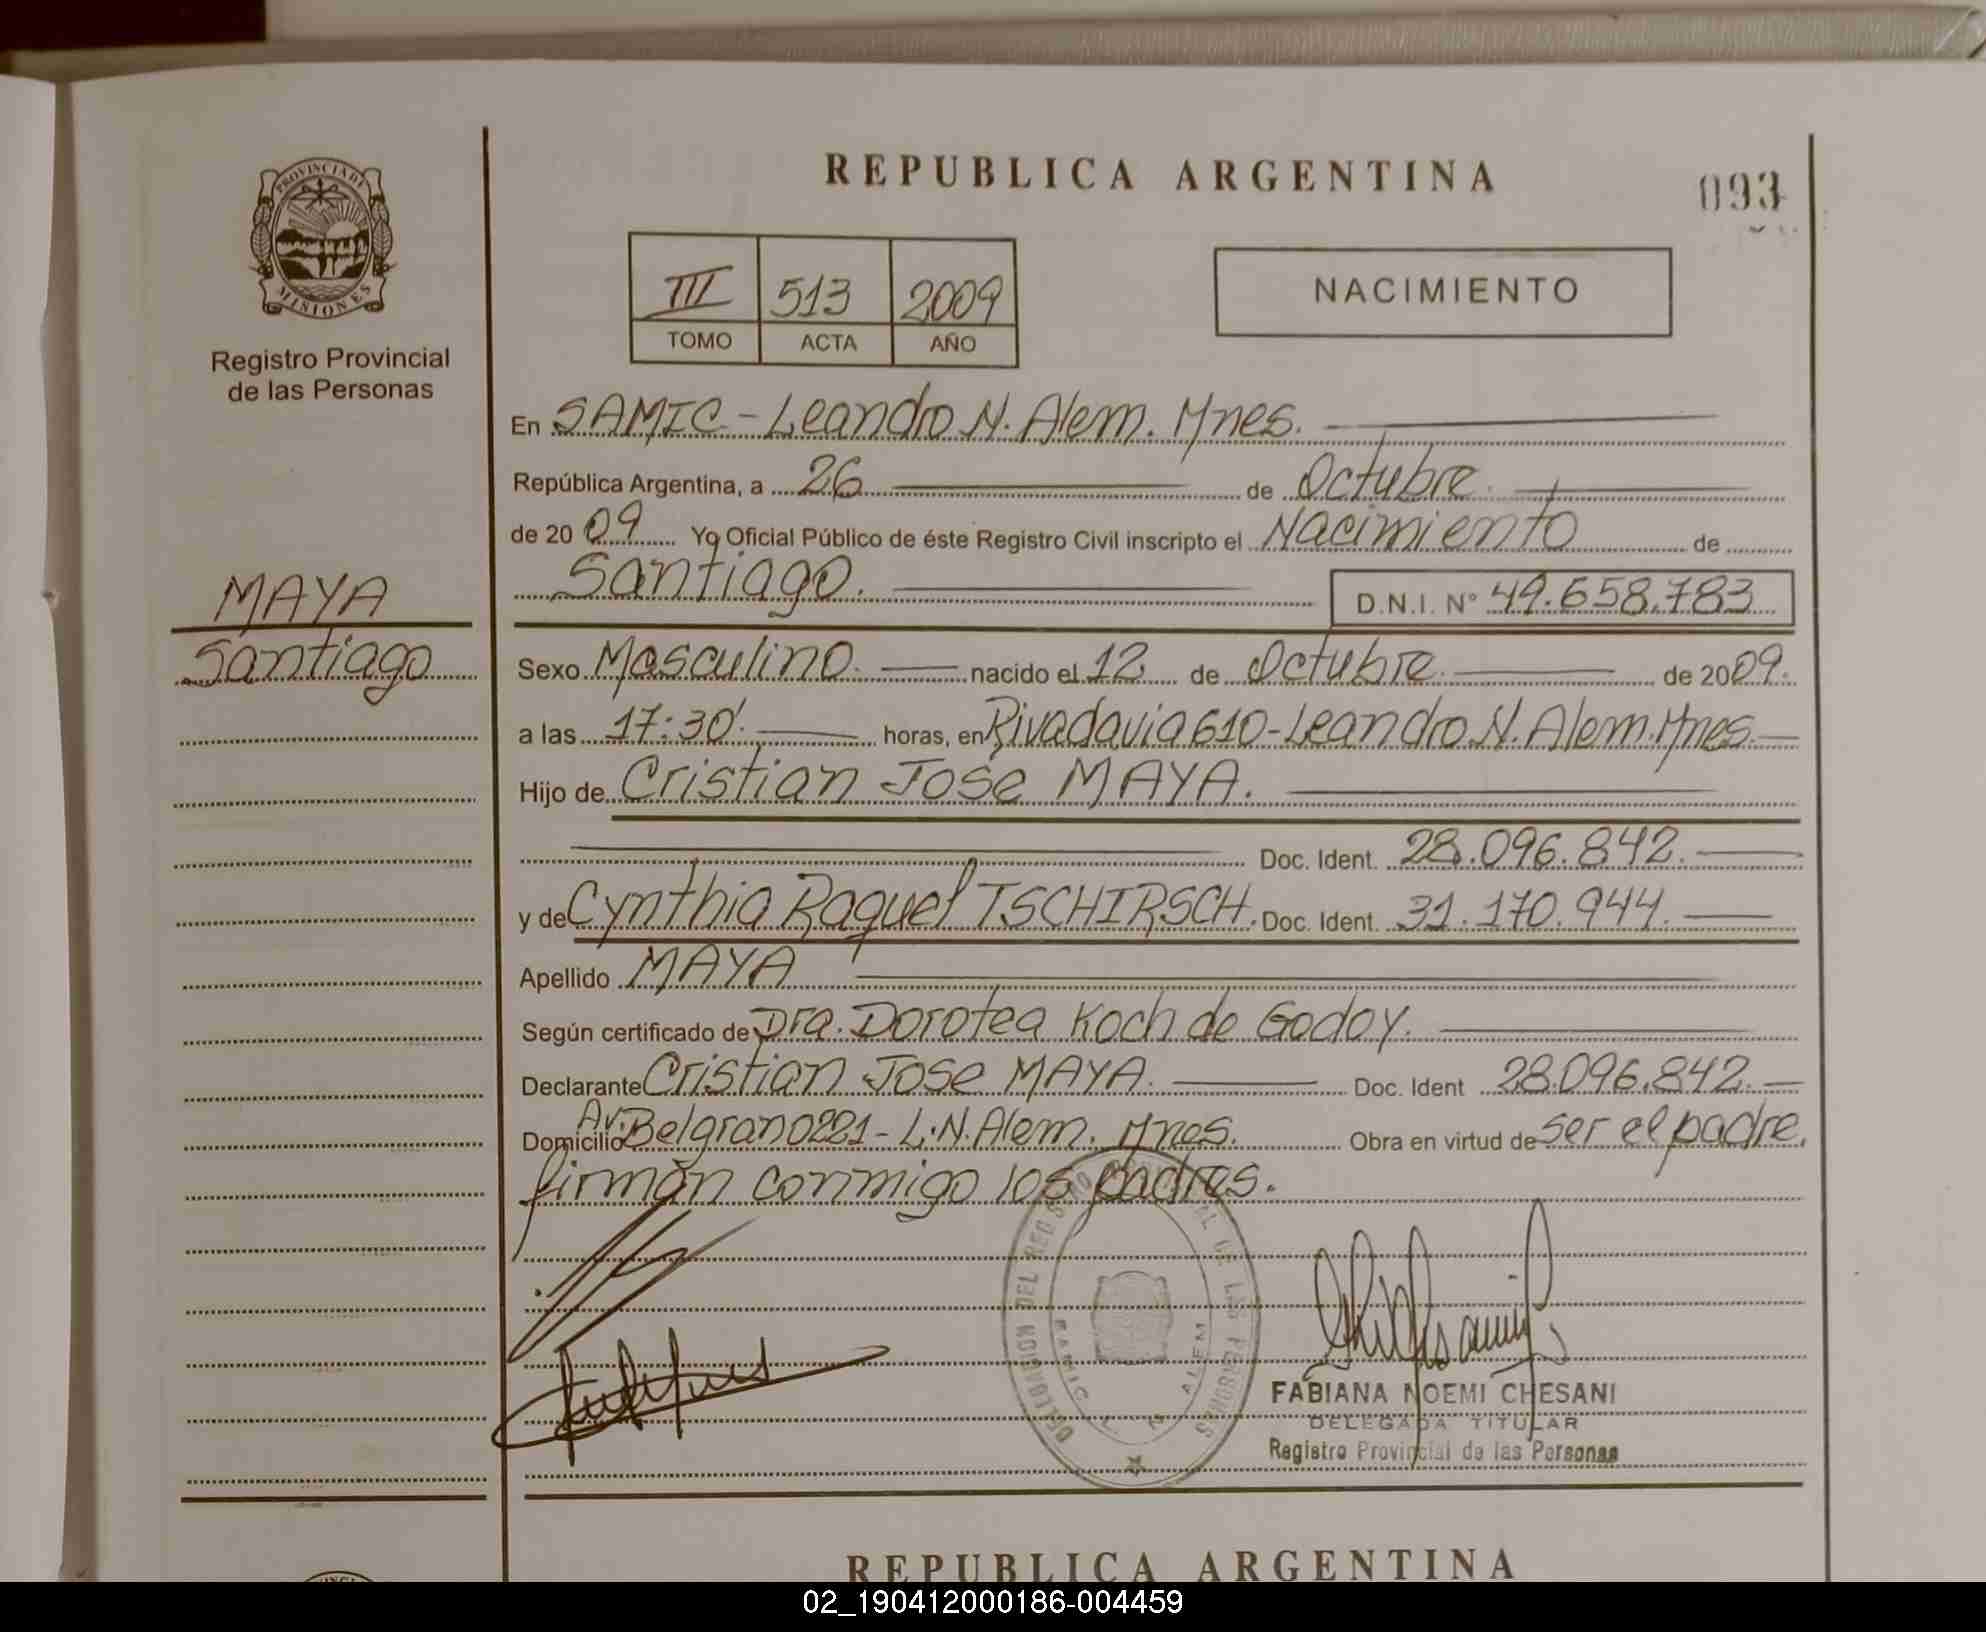 REPUBLICA ARGENTINA
093
PROVINCIA DE
MISIONES
Registro Provincial
de las Personas
III 513 2009
TOMO ACTA AÑO
NACIMIENTO
En SAMIC - Leandro N. Alem. Mnes.
República Argentina, a 26 de Octubre.
de 20 09 Yo Oficial Público de éste Registro Civil inscripto el Nacimiento de
Santiago. D.N.I. N° 49.658.783
MAYA
Santiago
Sexo Masculino. nacido el 12 de Octubre. de 2009.
a las 17:30'. horas, en Rivadavia 610 - Leandro N. Alem. Mnes.
Hijo de Cristian Jose MAYA.
Doc. Ident. 28.096.842.
y de Cynthia Raquel TSCHIRSCH. Doc. Ident. 31.170.944.
Apellido MAYA
Según certificado de Dra. Dorotea Koch de Godoy.
Declarante Cristian Jose MAYA. Doc. Ident 28.096.842.
Domicilio Av. Belgrano 221 - L.N. Alem. Mnes. Obra en virtud de ser el padre,
firman conmigo los padres.
DELEGACION DEL REGISTRO PROVINCIAL DE LAS PERSONAS
SAMIC L N ALEM
FABIANA NOEMI CHESANI
DELEGADA TITULAR
Registro Provincial de las Personas
REPUBLICA ARGENTINA
02_190412000186-004459